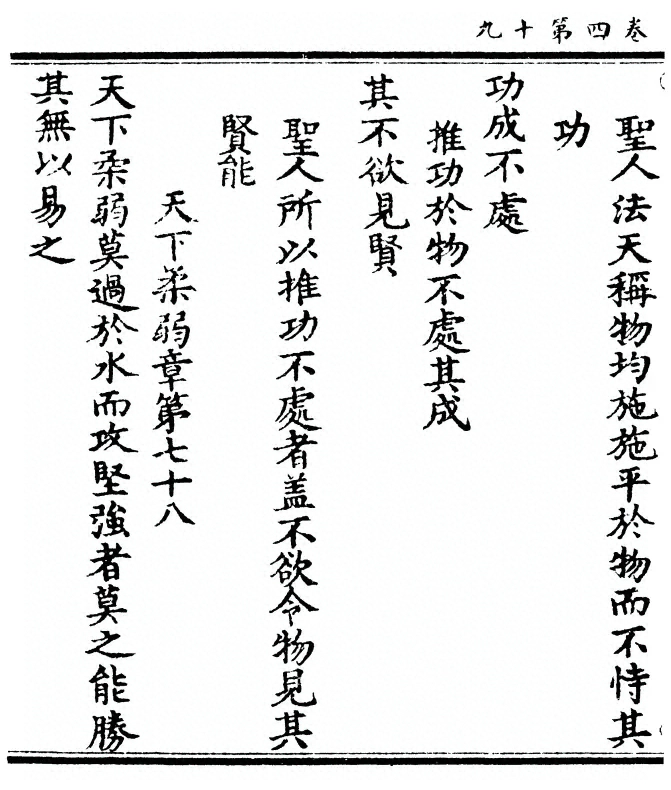 卷四第十九
聖人法天稱物均施施平於物而不恃其
功
功成不處
推功於物不處其成
其不欲見賢
聖人所以推功不處者盖不欲令物見其
賢能
天下柔弱章第七十八
天下柔弱莫過於水而攻堅強者莫之能勝
其無以易之